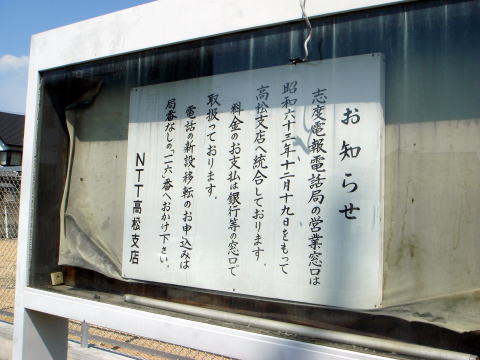 お知らせ
志度電報電話局の営業窓口は
昭和六十三年十二月十九日をもって
高松支店へ統合しております。
料金のお支払は銀行等の窓口で
取扱っております。
電話の新設移転のお申込みは
局番なしの「一一六」番へおかけ下さい。
NTT高松支店